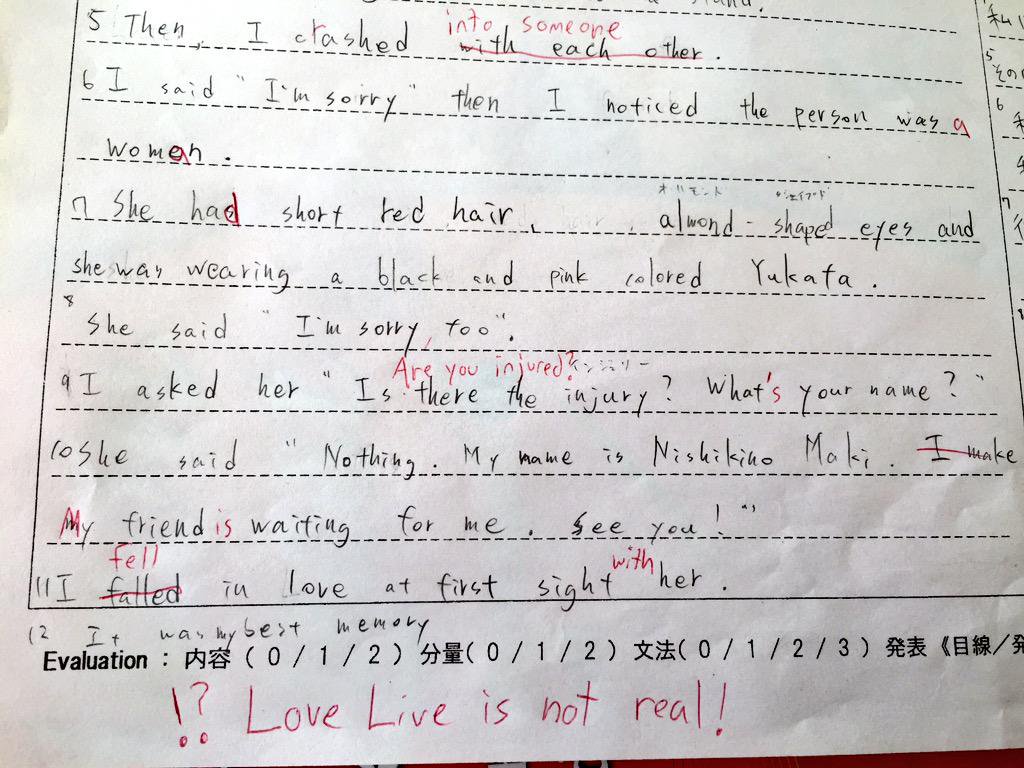 5 Then, I crashed into someone with each other.
6 I said "I'm sorry" then I noticed the person was a
woman.
7 She had short red hair, almond-shaped eyes and
オルモンド シェイプド
she was wearing a black and pink colored Yukata.
8 She said "I'm sorry, too".
Are you injured? インジュリー
9 I asked her "Is there the injury? What's your name?"
10 She said "Nothing. My name is Nishikino Maki. I make
My friend is waiting for me. See you!"
fell
11 I falled in Love at first sight with her.
12 It was my best memory
Evaluation : 内容 ( 0 / 1 / 2 ) 分量 ( 0 / 1 / 2 ) 文法( 0 / 1 / 2 / 3 ) 発表《目線/発
!? Love Live is not real!